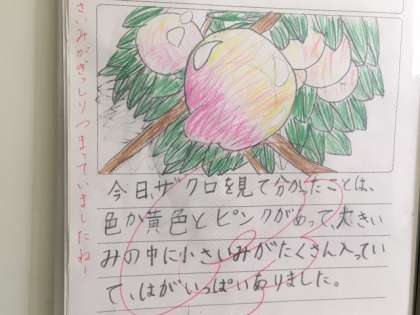 今日、ザクロを見て分かったことは、
色が黄色とピンクがあって、大きい
みの中に小さいみがたくさん入ってい
て、はがいっぱいありました。
さいみがぎっしりつまっていましたね!